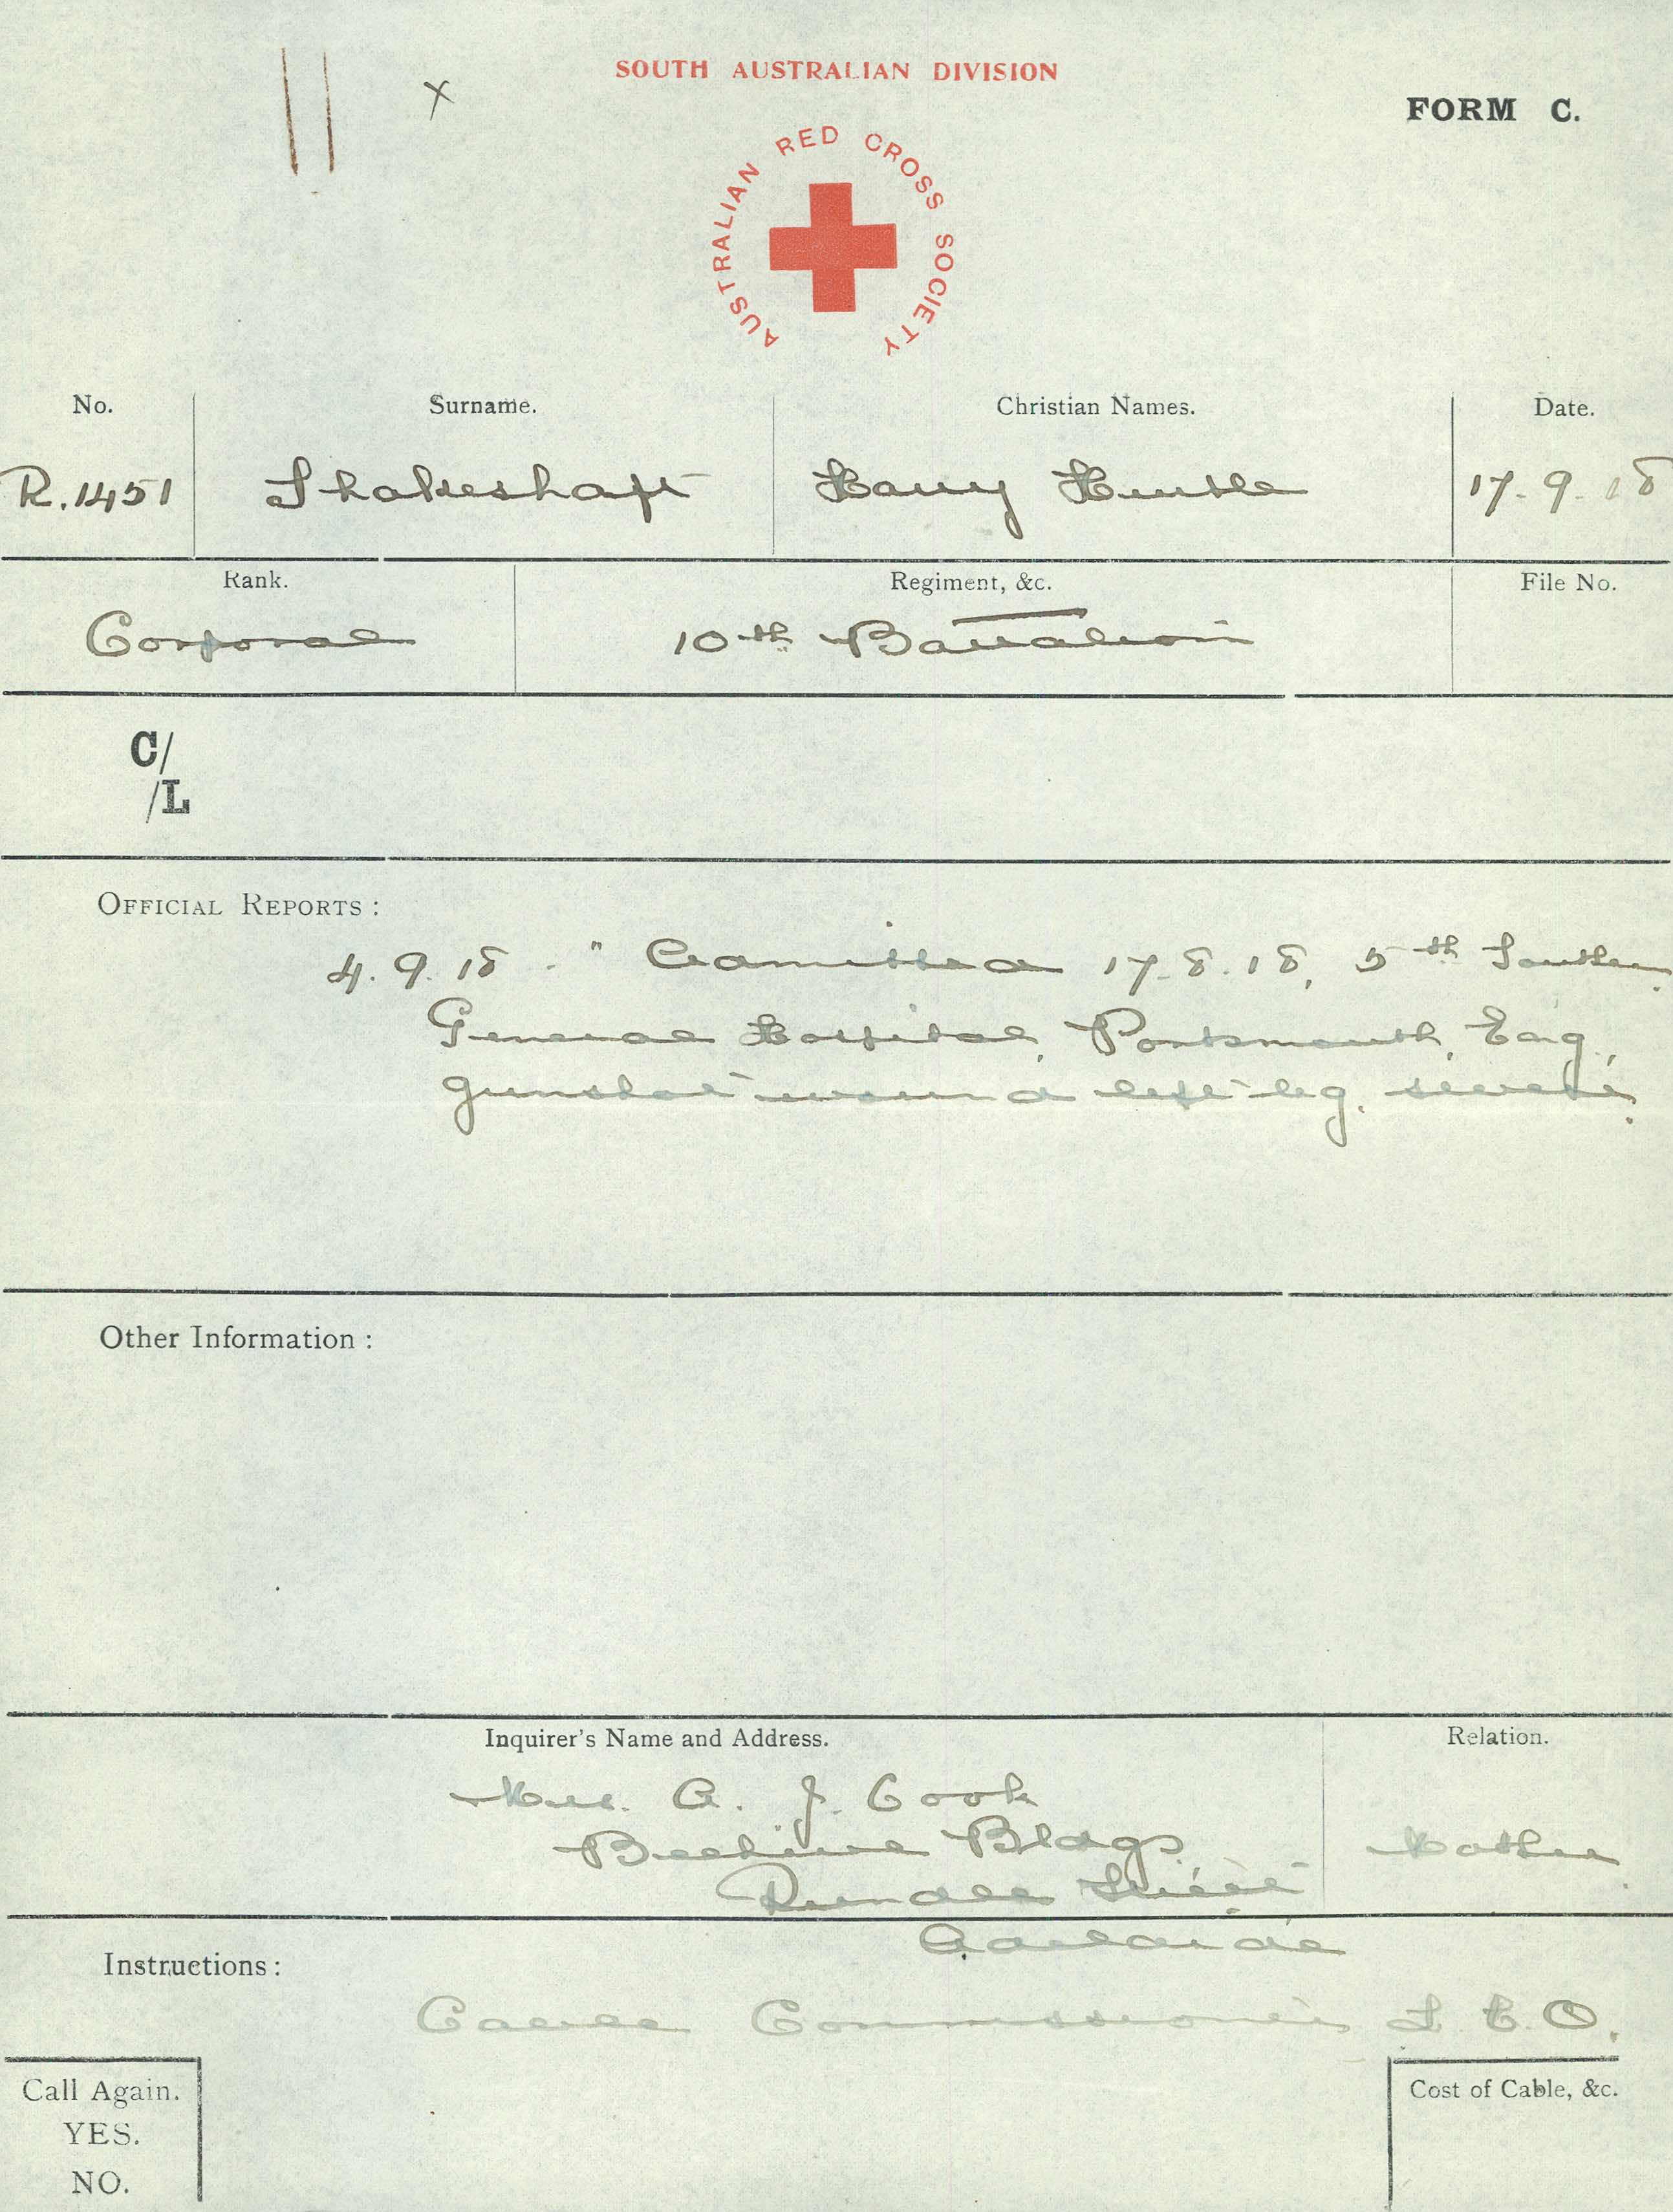 SOUTH AUSTRALIAN DIVISION
FORM C.
x
AUSTRALIAN RED CROSS SOCIETY
No. Surname. Christian Names. Date.
R.1451 Shakeshaft Harry Huntle 17.9.18
Rank. Regiment, &c. File No.
Corporal 10th Battalion
C/
/L
OFFICIAL REPORTS :
4.9.18 . " Admitted 17.8.18, 5th Southern
General Hospital, Portsmouth, Eng.,
gunshot wound left leg, severe.
Other Information :
Inquirer's Name and Address. Relation.
Mrs. A. J. Cook
Beehive Bldgs Mother
Rundle Street
Adelaide
Instructions :
Cable Commissioner
Call Again.
YES.
NO.
Cost of Cable, &c.